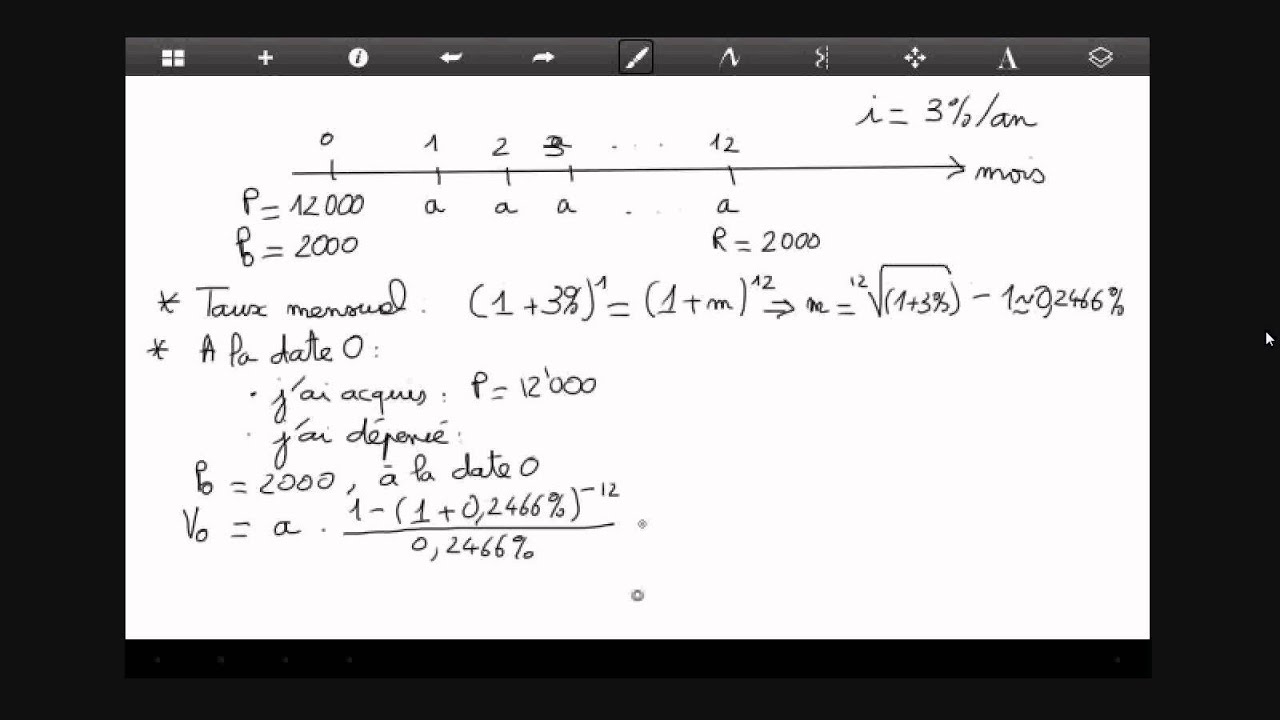 i = 3%/an
0 1 2 3 . . . 12
mois
P = 12000 a a a . . . a
P₀ = 2000 R = 2000
* Taux mensuel : (1+3%)¹ = (1+m)¹² ⇒ m = ¹²√(1+3%) - 1 ≈ 0,2466%
* A la date 0 :
· j'ai acquis : P = 12'000
· j'ai dépensé :
P₀ = 2000, à la date 0
V₀ = a · 1-(1+0,2466%)⁻¹²
0,2466%